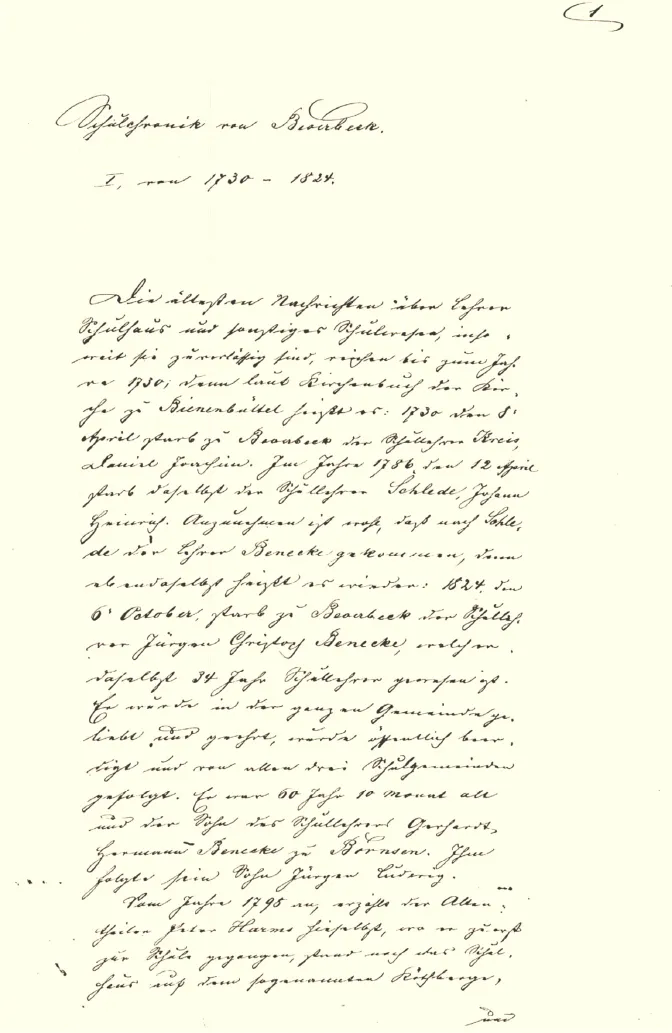 1
Schulchronik von Beverbeck.
I, von 1730 - 1824.
Die ältesten Nachrichten über Lehrer
Schulhaus und sonstiges Schulwesen, inso-
weit sie zuverlässig sind, reichen bis zum Jah-
re 1730; denn laut Kirchenbuch der Kir-
che zu Bienenbüttel heißt es: 1730 den 8t
April starb zu Beverbeck der Schullehrer Kreis,
Daniel Joachim. Im Jahre 1786, den 12 April
starb daselbst der Schullehrer Schlede, Johann
Heinrich. Anzunehmen ist wohl, daß nach Schle-
de der Lehrer Benecke gekommen, denn
ebendaselbst heißt es wieder: 1824, den
6t October, starb zu Beverbeck der Schulleh-
rer Jürgen Christoph Benecke, welcher
daselbst 34 Jahr Schullehrer gewesen ist.
Er wurde in der ganzen Gemeinde ge-
liebt und geehrt, wurde öffentlich beer-
digt und von allen drei Schulgemeinden
gefolgt. Er war 60 Jahr 10 Monat alt
und der Sohn des Schullehrers Gerhardt,
Hermann Benecke zu Bornsen. Ihm
folgte sein Sohn Jürgen Ludewig.
Vom Jahre 1795 an, erzählt der Alten-
theiler Peter Harms hieselbst, wo er zuerst
zur Schule gegangen, stand noch das Schul-
haus auf dem sogenannten Köthberge,
und